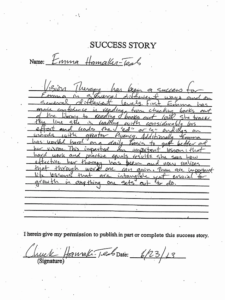 SUCCESS STORY
Name: Emma Hamaker-Taub
Vision Therapy has been a success for
Emma in several different ways and on
several different levels. First Emma has
more confidence in reading from checking books out
of the library to reading books out loud she knows
they line she is reading with considerably less
effort and reads the "ed" or "s" endings on
words with greater fluency. Additionally Emma
has worked hard on a daily basis to get better at
her vision. This imparted an important lesson that
hard work and practice equals results. She saw how
effective her therapy has been and now realizes
that through work one can gain. These are important
life lessons that are intangible yet crucial for
growth in anything one sets out to do.
I herein give my permission to publish in part or complete this success story.
Chuck Hamaker-Taub Date: 6/23/13
(Signature)